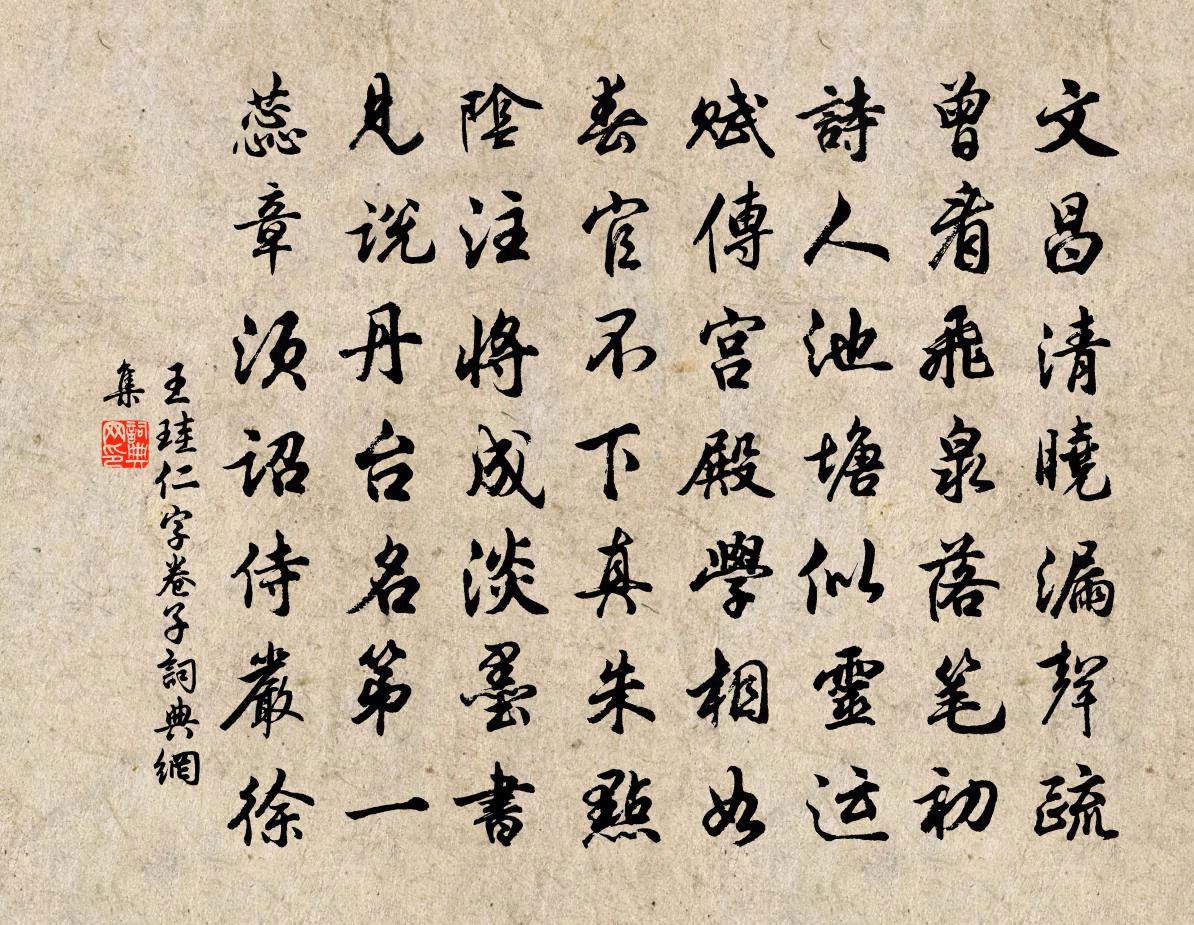 文昌清曉漏聲疏
曾看飛泉落笔初
詩人池塘似靈运
賦傳宮殿學相如
春官不下真朱點
陰注將成淡墨書
見説丹台名第一
蕊章須詔侍嚴徐
王珪仁字卷子詞典網
集
詞典
网